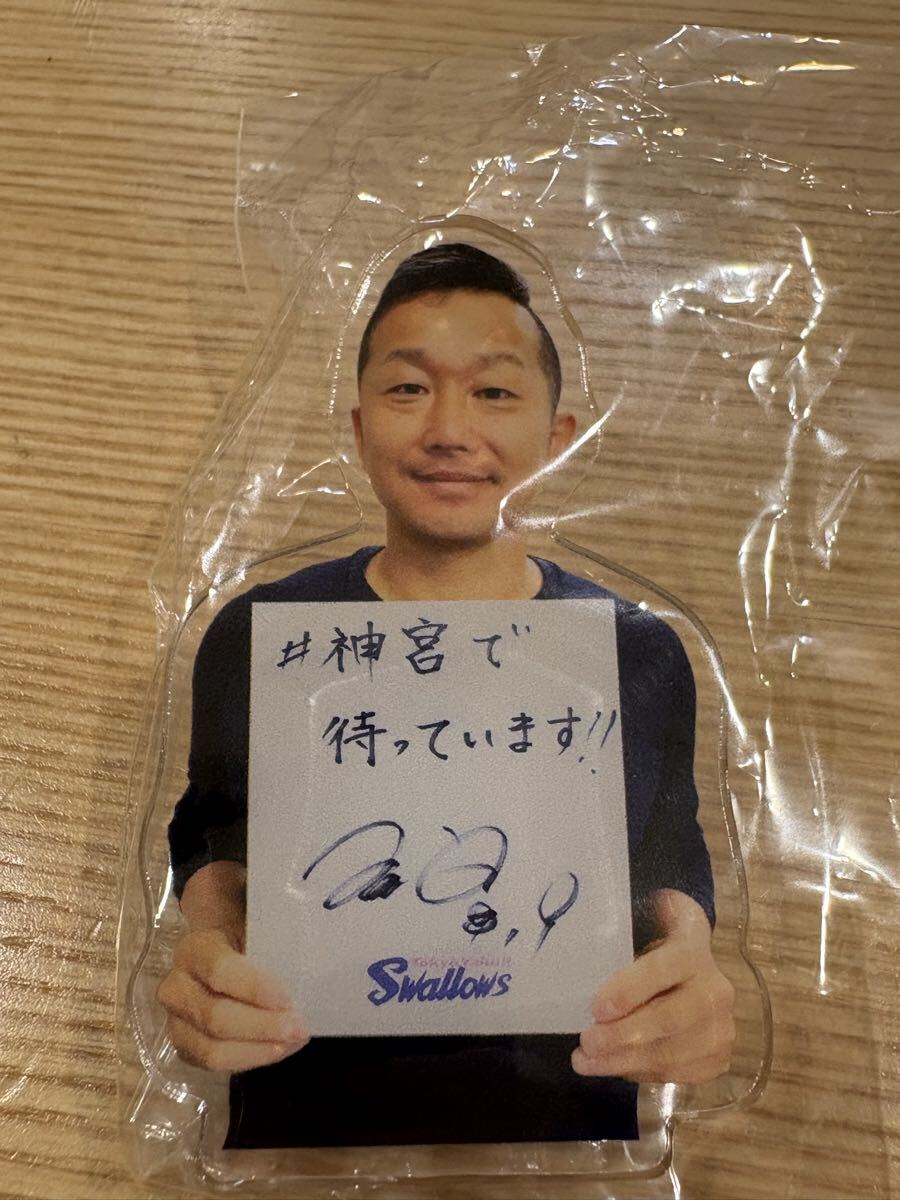 #神宮で
待っています!!
Tokyo Yakult
Swallows